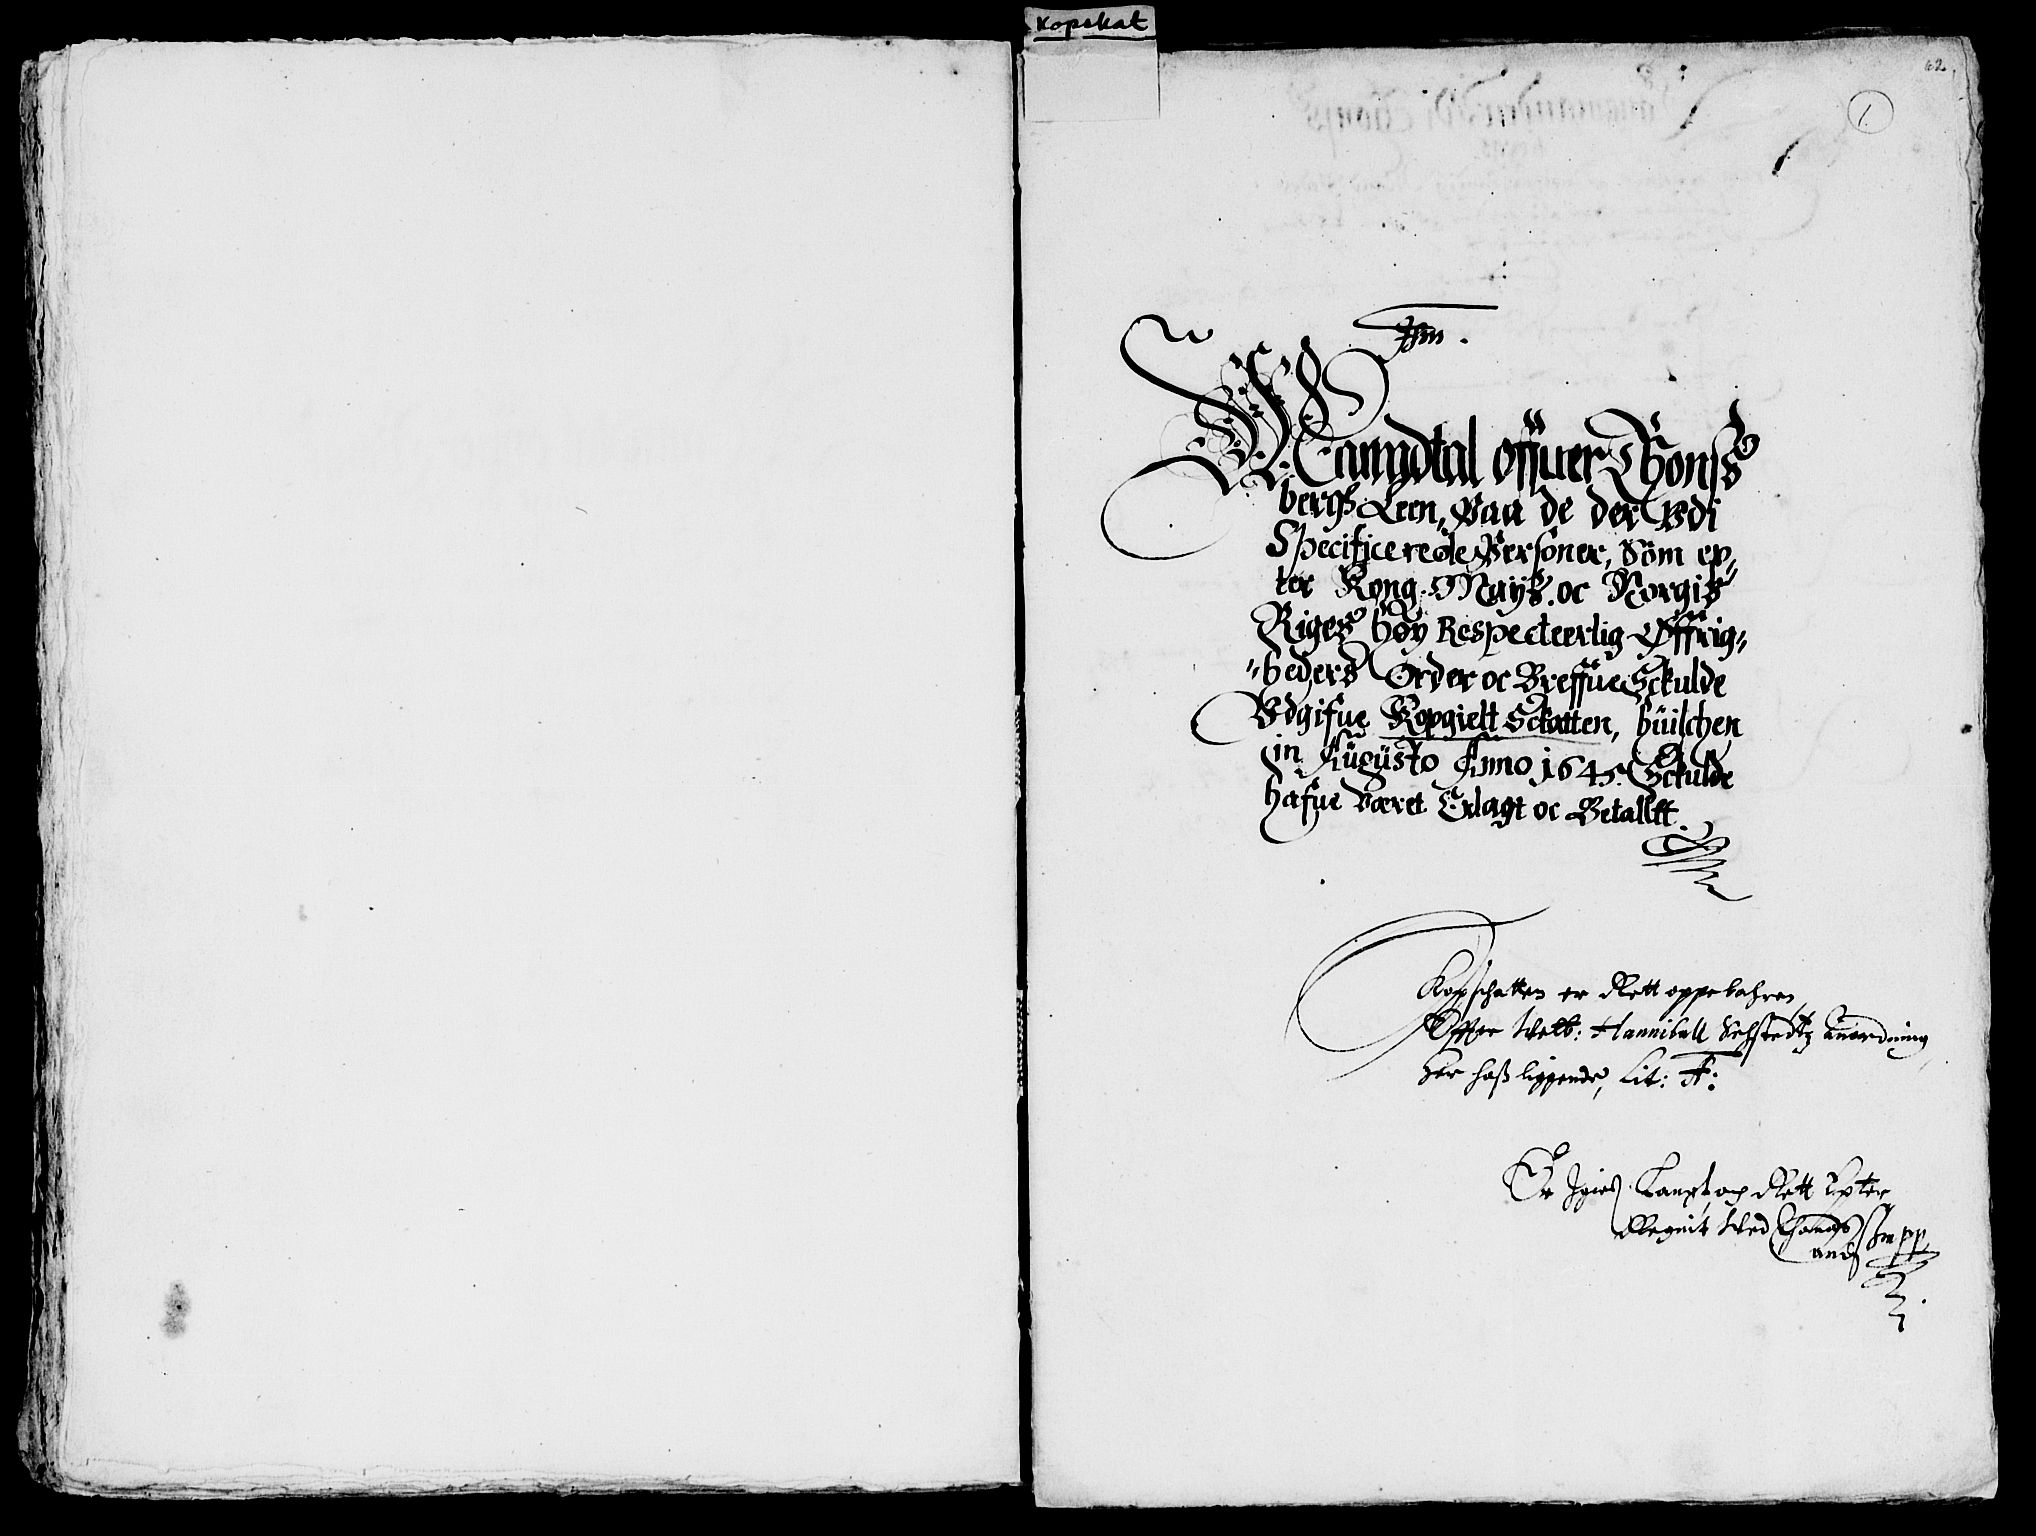 Kopskat
62.
1.
Manndtal offuer Tønsß
bergß Leen, Paa de der Vdi
Specificerede Personer, Som ep„
ter Kong. Mayß. oc Norgis
Riges høy Respecteerlig Øffrig„
„heders Order oc Breffue Schulde
Vdgifue Kopgielt Schatten, huilchen
in Augusto Anno 1645. Schulde
hafue været Erlagt oc Betallt.
Kopschatten er Rett oppebahren
Effter Welb: Hanniball Sehstedtz anordning
her hoß liggende, Lit: A:
Rett Epter
Regnit Wed